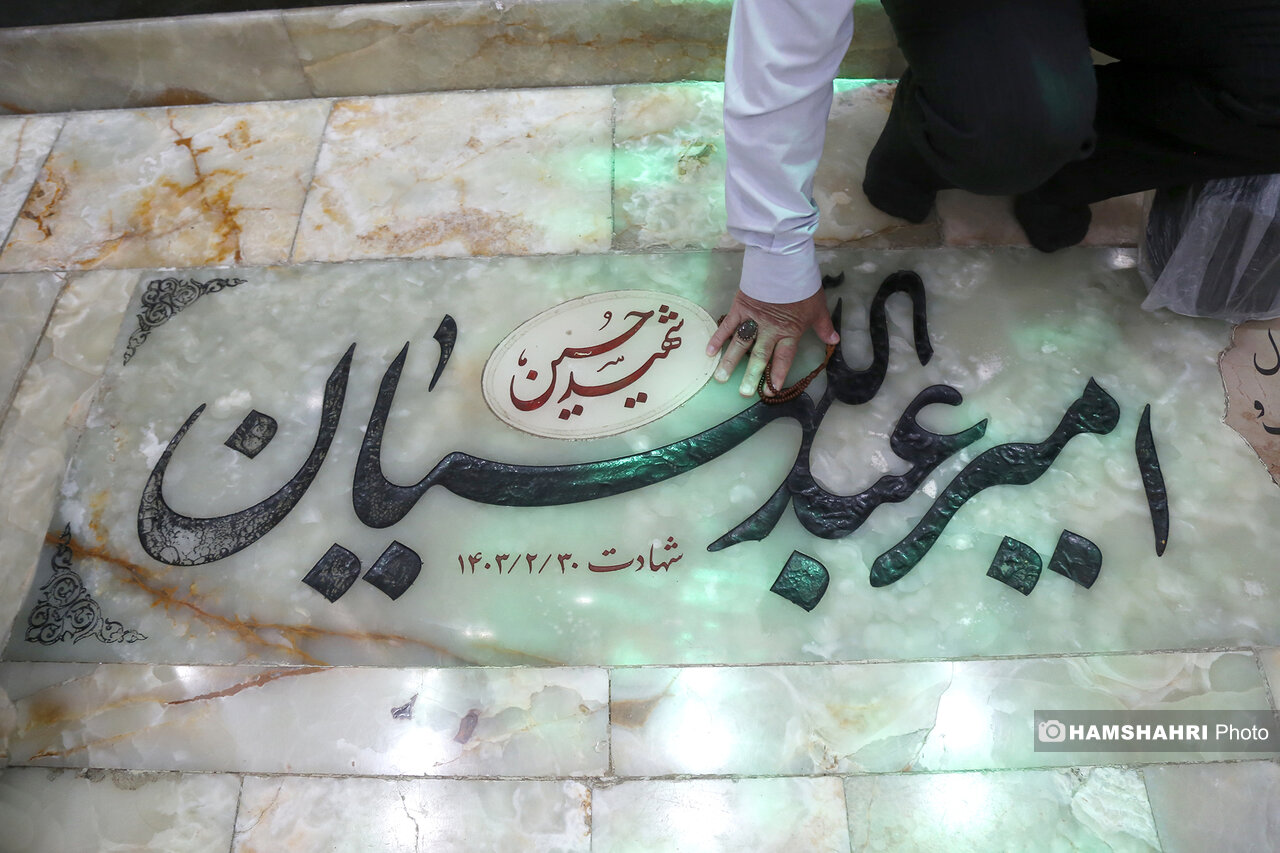 شهید حسین
امیرعبداللهیان
شهادت ۱۴۰۳/۲/۳۰
HAMSHAHRI Photo